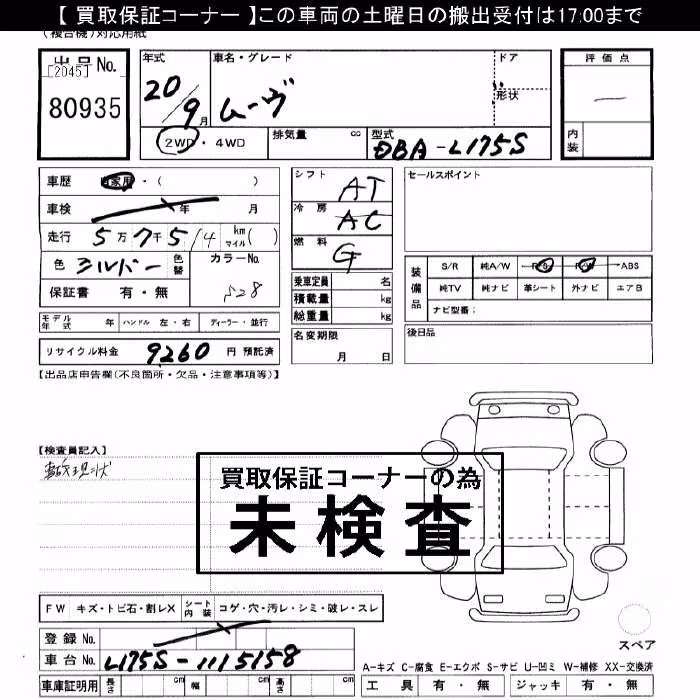 【 買取保証コーナー 】この車両の土曜日の搬出受付は17:00まで
(複合機)対応用紙
出品No.
[2045]
80935
年式
20/9月
車名・グレード
ムーヴ
ドア
形状
評価点
内装
2WD・4WD
排気量 cc
型式
DBA-L175S
車歴 自家用・( )
車検 年 月
走行 5万7千5/4 km マイル( )
色 シルバー 色替
カラーNo.
S28
保証書 有・無
シフト AT
冷房 AC
燃料 G
乗車定員 名
積載量 kg
総重量 kg
名変期限
月 日
セールスポイント
装備品
S/R 純A/W P/S P/W ABS
純TV 純ナビ 革シート 外ナビ エアB
ナビ型番:
後日品
モデル年式 年 ハンドル 左・右 ディーラー・並行
リサイクル料金 9260 円 預託済
【出品店申告欄(不良箇所・欠品・注意事項等)】
【検査員記入】
買取保証コーナーの為
未検査
FW キズ・トビ石・割レX シート内装 コゲ・穴・汚レ・シミ・破レ・スレ
登録No.
車台No. L175S-1115158
車庫証明用 長さ cm 幅 cm 高さ cm
スペア
A-キズ C-腐食 E-エクボ S-サビ U-凹ミ W-補修 XX-交換済
工具 有・無 ジャッキ 有・無